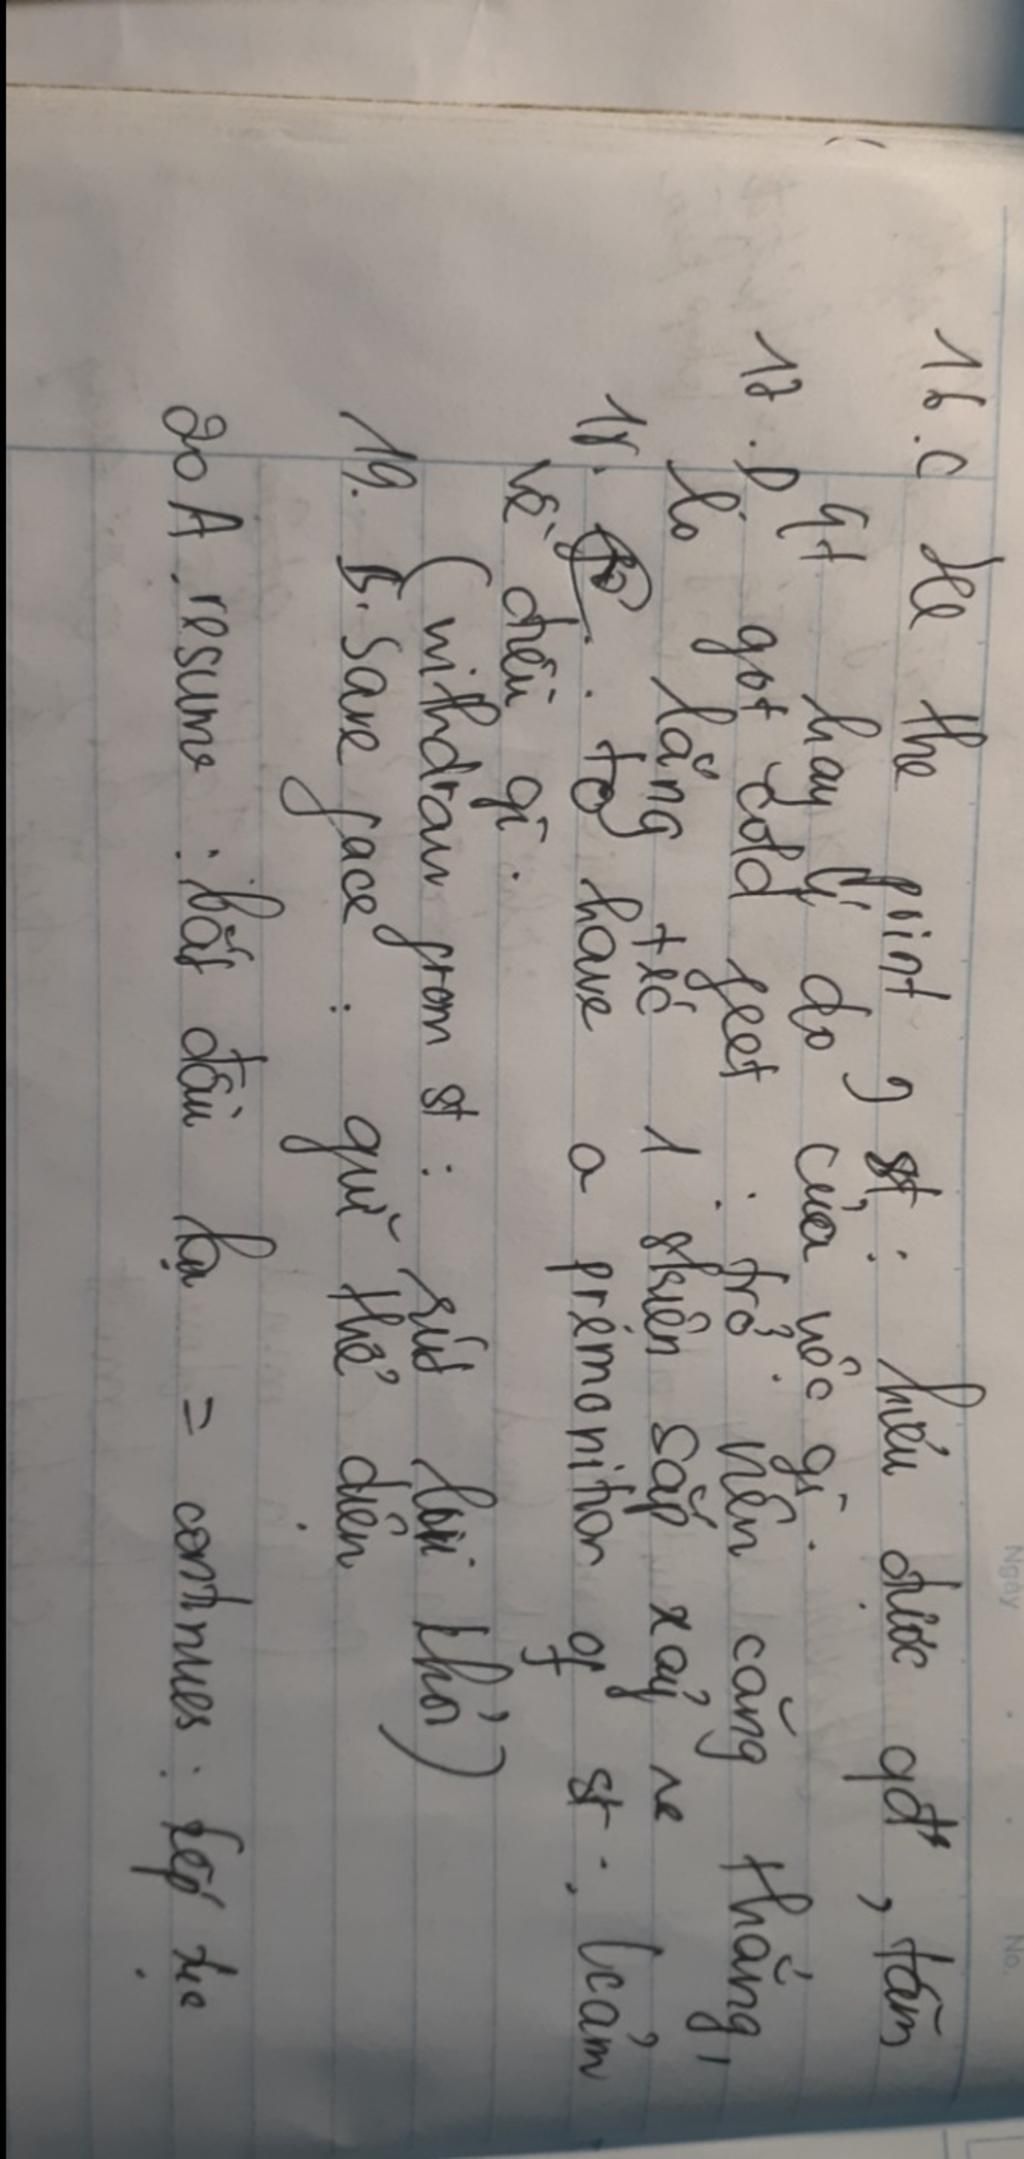 Ngày No.
16. C See the point of st : hiểu được qđ', tầm
qt hay lý do của việc gì.
17. D got cold feet : trở nên căng thẳng,
lo lắng tr'c 1 skiện sắp xảy ra
18. to have a premonition of st. (cảm
về điều gì.
(withdraw from st : rút lui khỏi)
19. B. Save face : giữ thể diện
20 A. resume : bắt đầu lại = continues : tiếp tục